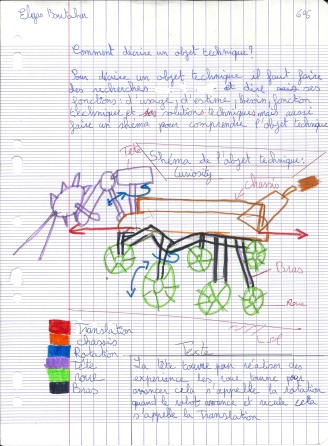 Elyes Boutahar 6°6
Comment décrire un objet technique?
Pour décrire un objet technique il faut faire
des recherches et dire aussi ses
fonctions: d'usage, d'estime, besoin, fonction
technique et ses solutions techniques mais aussi
faire un shéma pour comprendre l'objet technique
Tête
Shéma de l'objet technique:
Curiosity
Chassis
Bras
Roue
Sol
Translation
chassis
Rotation
Tête
roue
Bras
Texte
La tête tourne pour réaliser des
experience, les roue tourne pour
avancer cela s'appelle la rotation
quand le robot avance et recule cela
s'appelle la Translation